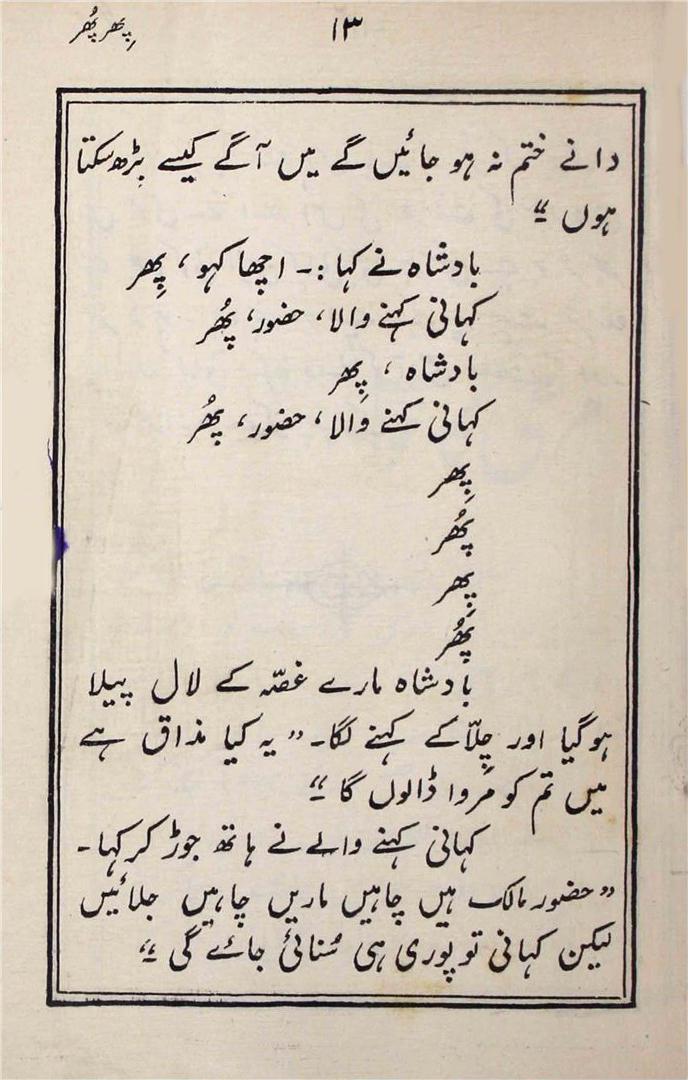 پِھر پُھر
۱۳
دانے ختم نہ ہو جائیں گے میں آگے کیسے بڑھ سکتا
ہوں “
بادشاہ نے کہا :۔ اچھا کہو ، پِھر
کہانی کہنے والا، حضور، پُھر
بادشاہ ، پِھر
کہانی کہنے والا، حضور، پُھر
پِھر
پُھر
پِھر
پُھر
بادشاہ مارے غصّہ کے لال پیلا
ہوگیا اور چِلّا کے کہنے لگا۔ ”یہ کیا مذاق ہے
میں تم کو مَروا ڈالوں گا “
کہانی کہنے والے نے ہاتھ جوڑ کر کہا۔
”حضور مالک ہیں چاہیں ماریں چاہیں جلائیں
لیکن کہانی تو پوری ہی سُنائی جائے گی “